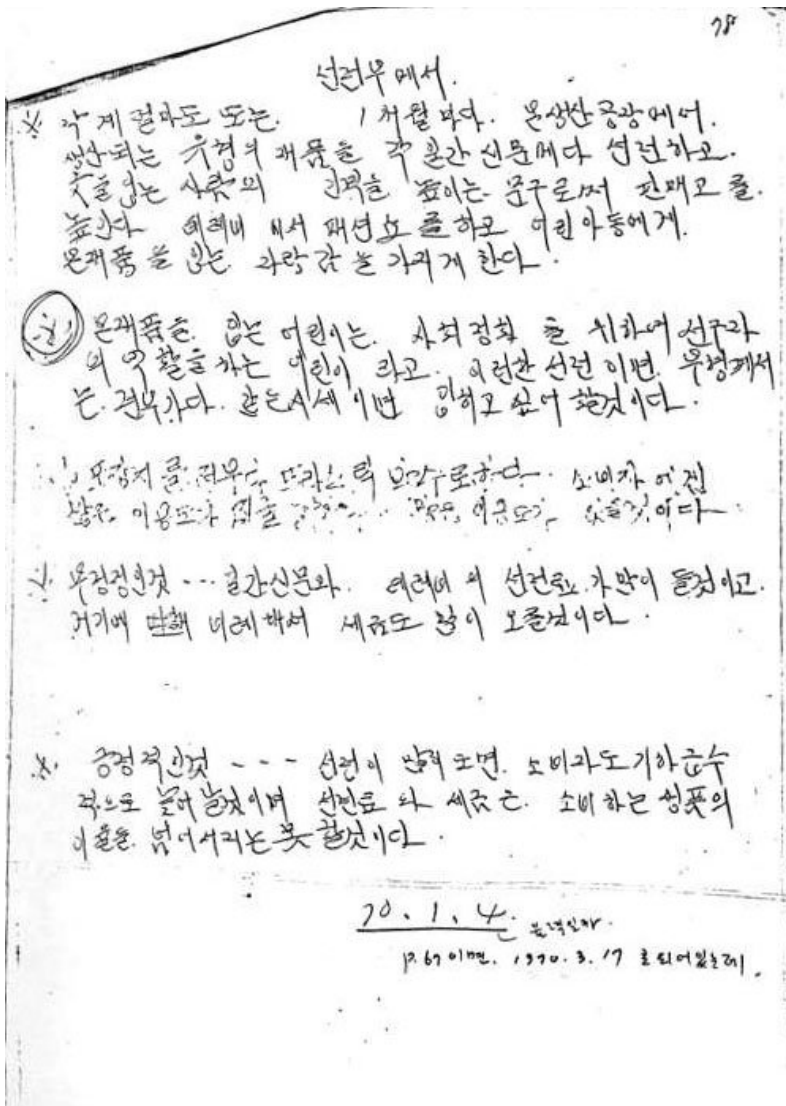 78
선전부에서.
※ 각 계절마다 또는. 1개월마다. 본생산공장에서.
생산되는 유형의 제품을 각 일간신문에다 선전하고.
옷을 입는 사람의 인격을 높이는 문구로써 판매고를.
높인다. 테레비에서 패션쇼를하고 어린아동에게.
본제품을 입는 자랑감을 가지게 한다.
※ 본제품을. 입는 어린이는. 사회정화를 위하여 선구자
의 역활을 하는 어린이라고. 이러한 선전이면. 부형께서
는. 전부가다. 같은시세이면 입히고 싶어 할것이다.
포장지를 전부 소비자의
이용도가 이다
※ 부정적인것 ··· 일간신문와. 테레비의 선전료가많이 들것이고.
거기에 비례해서 세금도 많이 오를것이다.
※ 긍정적인것 - - - 선전이 많이 되면. 소비자도기하급수
적으로 늘어날것이며 선전료와 세금은. 소비하는 상품의
이윤을 넘어서지는못할것이다.
70. 1. 4.
p.67이면. 1970. 3. 17 로되어있는데.